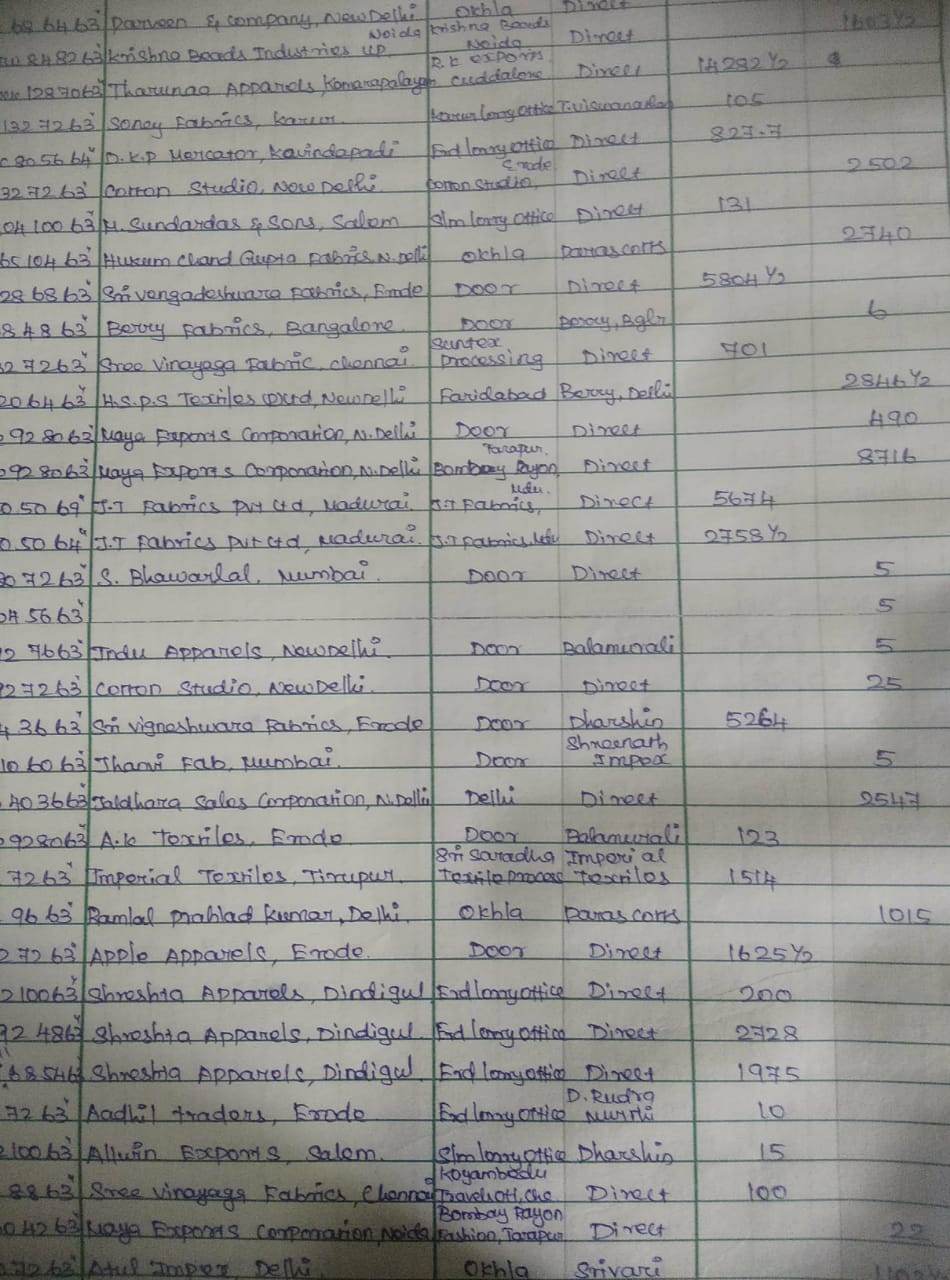 68 64 63" Parveen & company, New Delhi Okhla Direct 1603 1/2
848263" Krishna Beads Industries UP Noida Krishna Beads Noida Direct
1287063" Tharunaa Apparels, Komarapalayam R.K exports Cuddalore Direct 14282 1/2
132 7263" Soney Fabrics, Karur Karur Lorry Office T.Viswanathan 105
80 56 64" D.K.P Mercator, Kavindapadi Erd lorry office Direct 827.7
32 72 63" Cotton Studio, New Delhi Cotton Studio, Erode Direct 2502
04 100 63" M. Sundardas & Sons, Salem Slm lorry office Direct 131
65 104 63" Hukum Chand Gupta Fabrics, N. Delhi Okhla Paras corts 2740
28 68 63" Sri Vengadeshwara Fabrics, Erode Door Direct 5804 1/2
84 8 63" Berry Fabrics, Bangalore Door Berry, Bglr 6
27263" Sree Vinayaga Fabric, Chennai Suntex Processing Direct 701
206463" H.S.P.S Textiles Pvt Ltd, New Delhi Faridabad Berry, Delhi 2846 1/2
928063" Maya Exports Corporation, N. Delhi Door Direct 490
928063" Maya Exports Corporation, N. Delhi Bombay Rayon Tarapur. Direct 8716
0 50 69" J.T Fabrics Pvt Ltd, Madurai J.T Fabrics, Mdu. Direct 5674
0.50 64" J.T Fabrics Pvt Ltd, Madurai. J.T Fabrics, Mdu Direct 2758 1/2
07263" S. Bhawarlal, Mumbai. Door Direct 5
5663" 5
2 7663" Indu Apparels, New Delhi. Door Balamurali 5
27263" Cotton Studio, New Delhi. Door Direct 25
3663" Sri Vigneshwara Fabrics, Erode Door Dharshin 5264
106063" Thanvi Fab, Mumbai. Door Shreenath Impex 5
403663" Jaldhara Sales Corporation, N. Delhi Delhi Direct 2547
928063" A.K Textiles, Erode Door Balamurali 123
7263" Imperial Textiles, Tirupur. Sri Saradha Textile process Imperial Textiles 1514
9663" Ramlal Prahlad Kumar, Delhi. Okhla Paras corts 1015
27263" Apple Apparels, Erode. Door Direct 1625 1/2
210063" Shreshta Apparels, Dindigul Erd lorry office Direct 200
2 4863" Shreshta Apparels, Dindigul. Erd lorry office Direct 2728
68 54 63" Shreshta Apparels, Dindigul. Erd lorry office Direct 1975
7263" Aadhil traders, Erode Erd lorry office D. Rudra Murthi 10
210063" Allwin Exports, Salem. Slm lorry office Dharshin 15
8863" Sree Vinayaga Fabrics, Chennai Koyambedu Travels off, Che Direct 100
04263" Maya Exports Corporation, Noida Bombay Rayon Fashion, Tarapur Direct 22
7263" Atul Impex, Delhi. Okhla Srivari